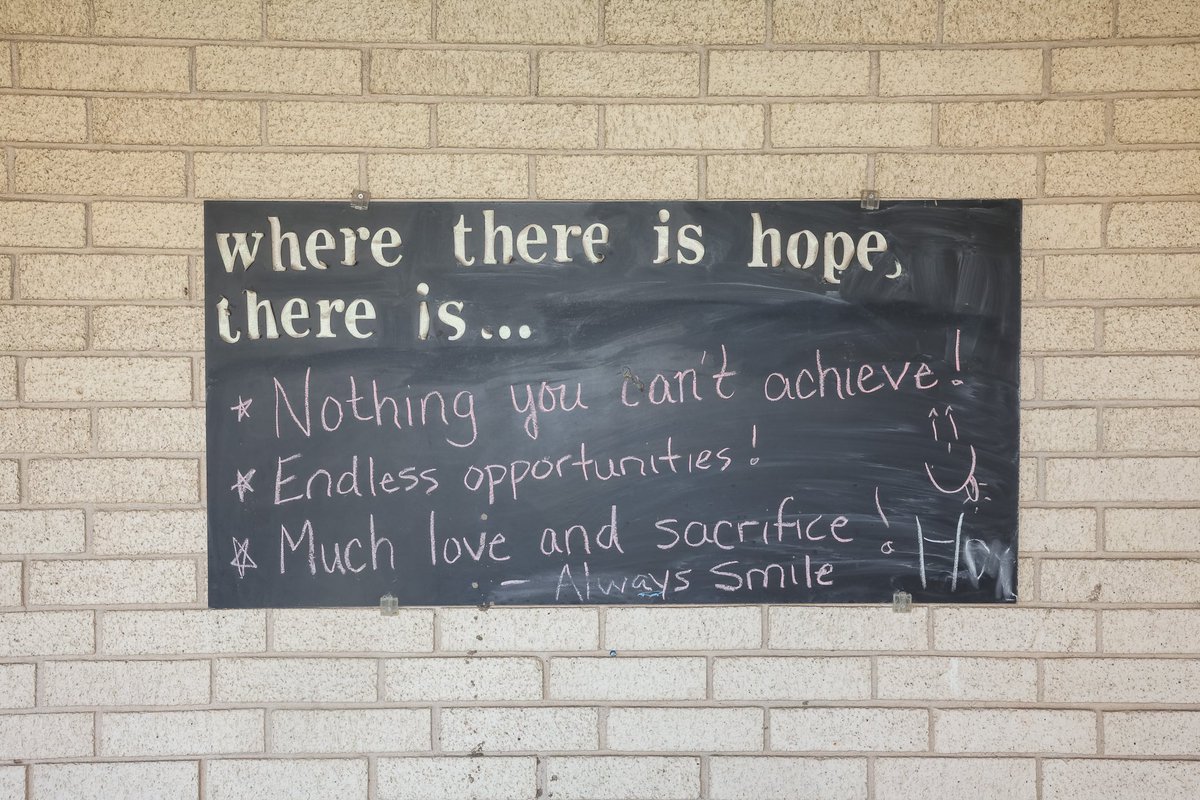 where there is hope,
there is...
Nothing you can't achieve!
Endless opportunities!
Much love and sacrifice!
- Always smile